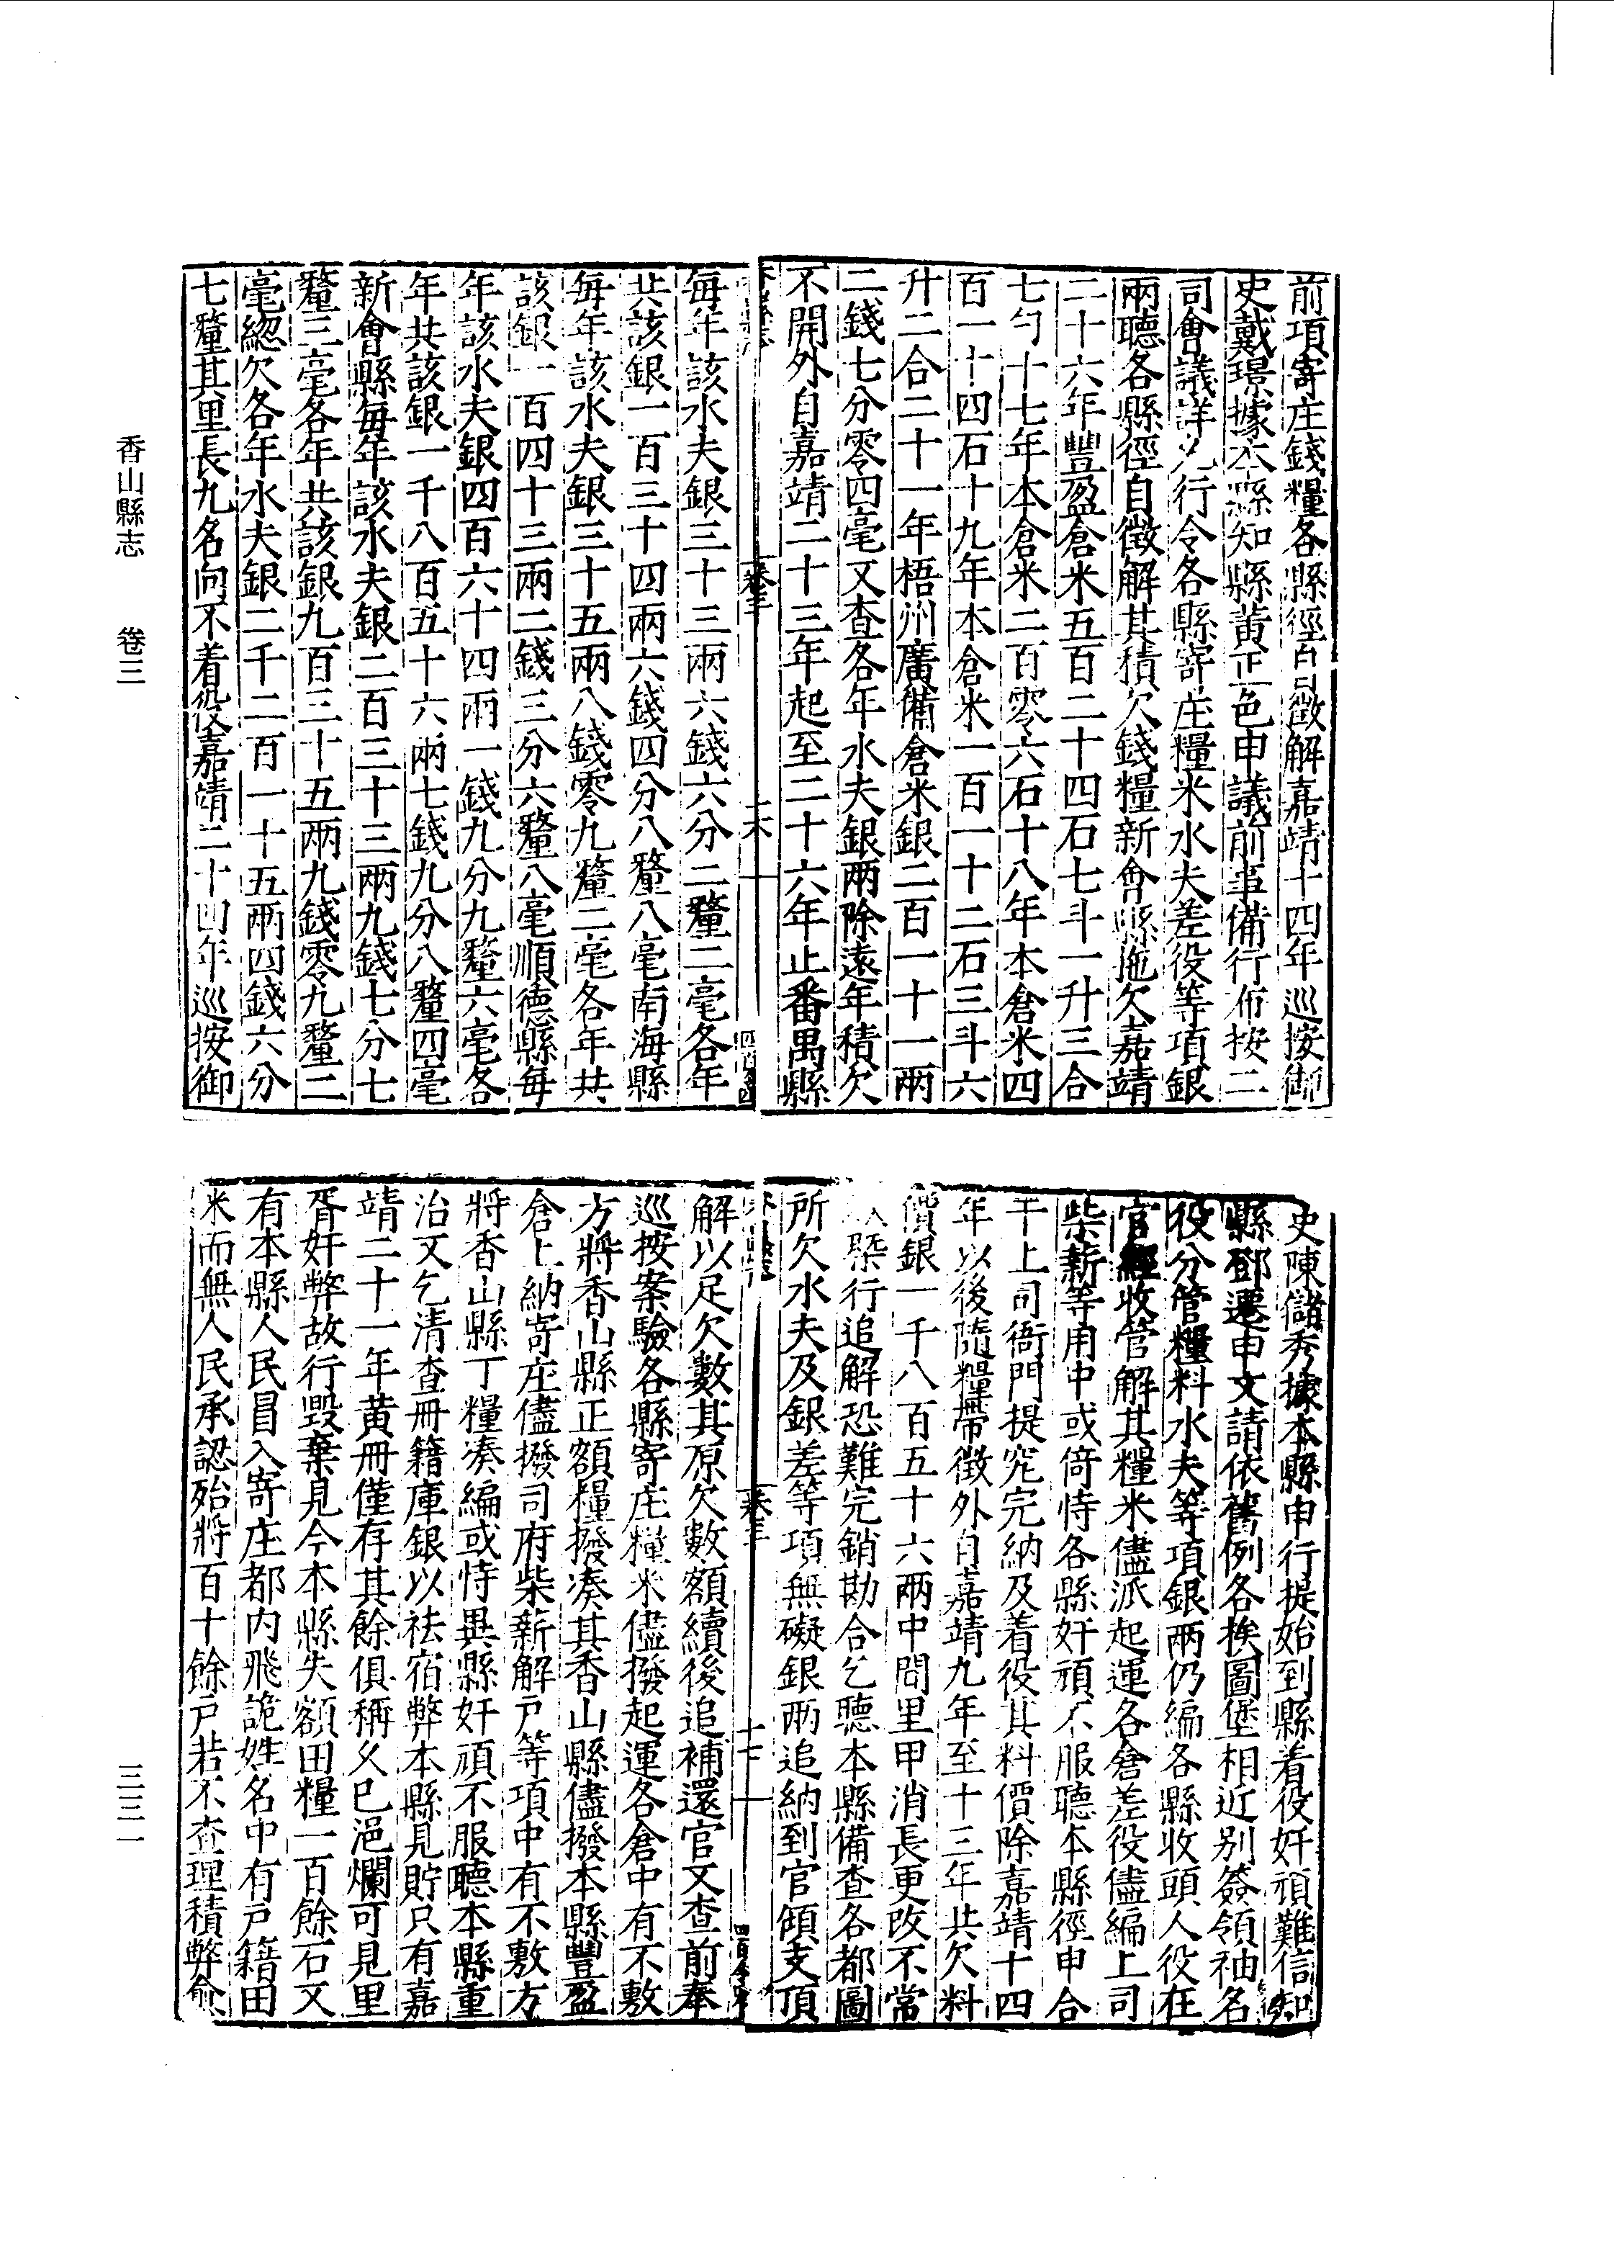 前項寄庄錢糧各縣徑自徵解嘉靖十四年巡按御
史戴璟據本縣知縣黃正色申議前事備行布按二
司會議詳允行令各縣寄庄糧米水夫差役等項銀
兩聽各縣徑自徵解其積欠錢糧新會縣拖欠嘉靖
二十六年豐盈倉米五百二十四石七斗一升三合
七勺十七年本倉米二百零六石十八年本倉米四
百一十四石十九年本倉米一百一十二石三斗六
升二合二十一年梧州廣備倉米銀二百一十一兩
二錢七分零四毫又查各年水夫銀兩除遠年積欠
不開外自嘉靖二十三年起至二十六年止番禺縣
卷三
十六
每年該水夫銀三十三兩六錢六分二釐二毫各年
共該銀一百三十四兩六錢四分八釐八毫南海縣
每年該水夫銀三十五兩八錢零九釐二毫各年共
該銀一百四十三兩二錢三分六釐八毫順德縣每
年該水夫銀四百六十四兩一錢九分九釐六毫各
年共該銀一千八百五十六兩七錢九分八釐四毫
新會縣每年該水夫銀二百三十三兩九錢七分七
釐三毫各年共該銀九百三十五兩九錢零九釐二
毫總欠各年水夫銀二千二百一十五兩四錢六分
七釐其里長九名向不着役嘉靖二十四年巡按御
史陳儲秀據本縣申行提始到縣着役奸頑難信知
縣鄧遷申文請依舊例各挨圖堡相近別簽領袖名
役分管糧料水夫等項銀兩仍編各縣收頭人役在
官經收管解其糧米儘派起運各倉差役儘編上司
柴薪等用中或倚恃各縣奸頑不服聽本縣徑申合
干上司衙門提究完納及着役其料價除嘉靖十四
年以後隨糧帶徵外自嘉靖九年至十三年共欠料
價銀一千八百五十六兩中間里甲消長更改不常
槩行追解恐難完銷勘合乞聽本縣備查各都圖
所欠水夫及銀差等項無礙銀兩追納到官傾支頂
卷三
十七
解以足欠數其原欠數額續後追補還官文查前奉
巡按案驗各縣寄庄糧米儘撥起運各倉中有不敷
方將香山縣正額糧撥湊其香山縣儘撥本縣豐盈
倉上納寄庄儘撥司府柴薪解戶等項中有不敷方
將香山縣丁糧湊編或恃異縣奸頑不服聽本縣重
治又乞清查冊籍庫銀以袪宿弊本縣見貯只有嘉
靖二十一年黃冊僅存其餘俱稱久已浥爛可見里
胥奸弊故行毀棄見今本縣失額田糧一百餘石又
有本縣人民冒入寄庄都內飛詭姓名中有戶籍田
米而無人民承認殆將百十餘戶若不查理積弊愈
香山縣志　卷三
三三一